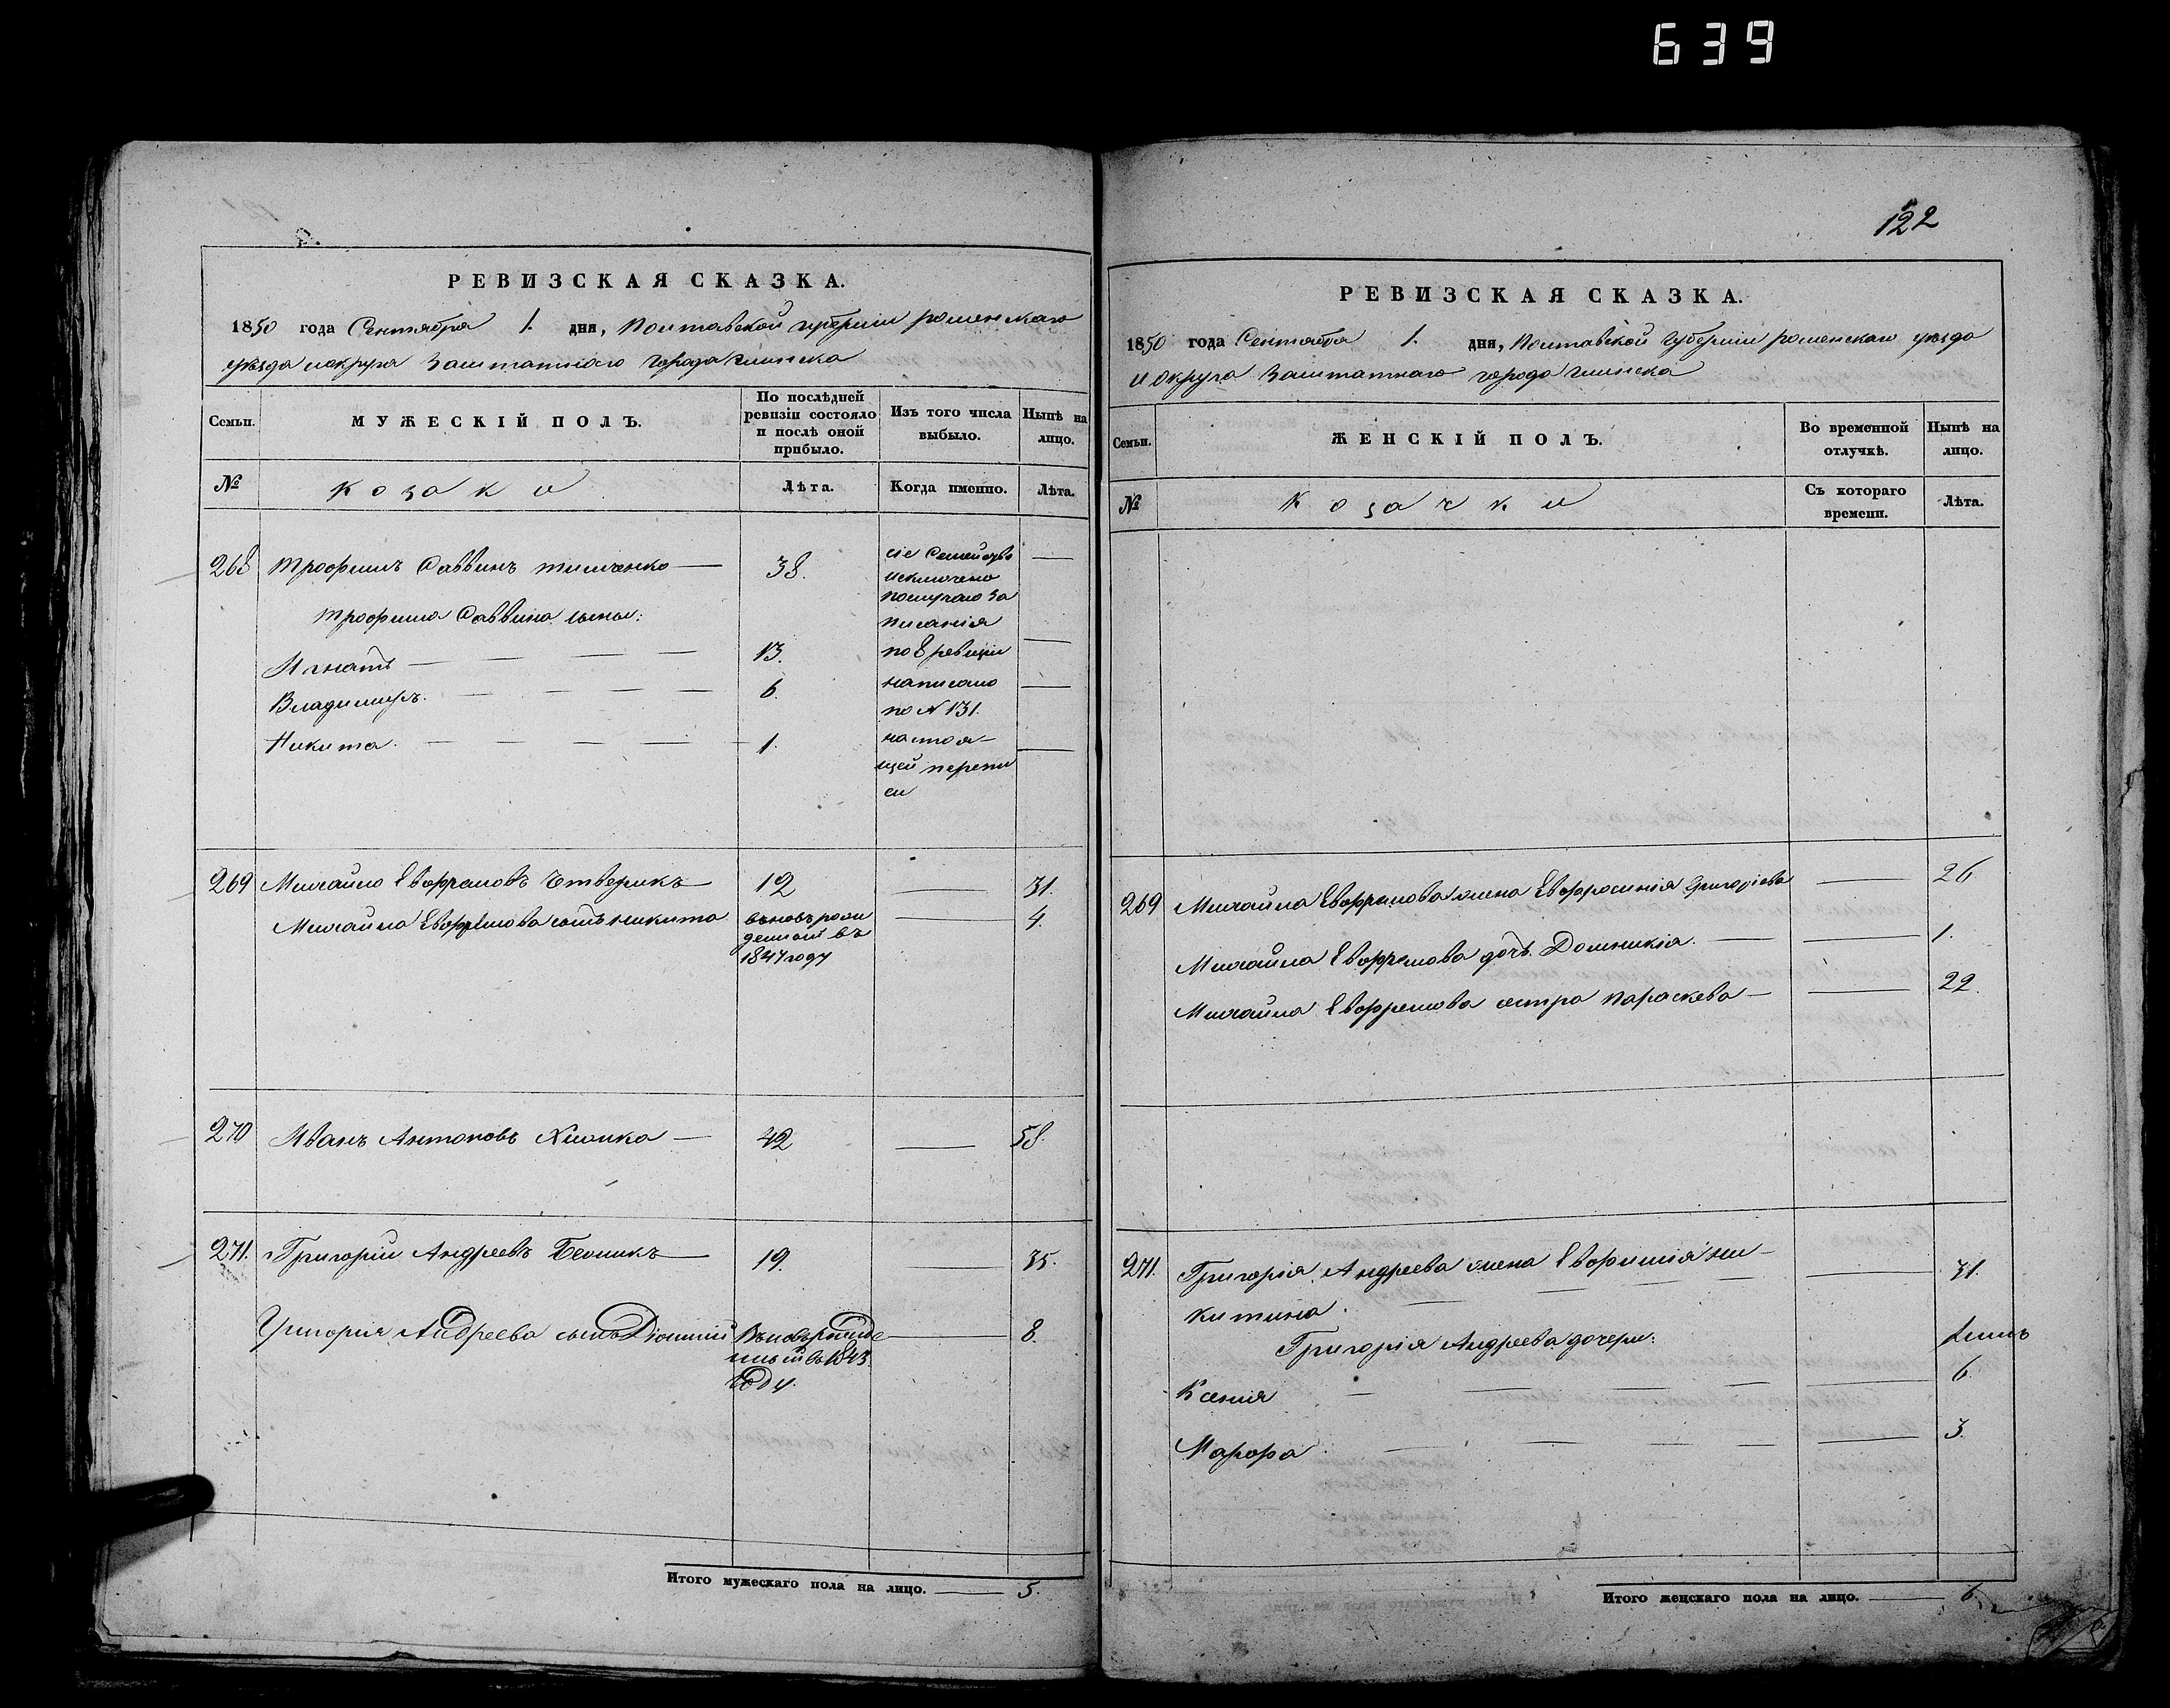 639
122
РЕВИЗСКАЯ СКАЗКА.
1850 года Сентября 1. дня, Полтавской губерніи роменскаго
уѣзда иокруга Заштатного города Глинска
Семьи.
МУЖЕСКІЙ ПОЛЪ.
По послѣдней
ревизіи состояло
и послѣ оной
прибыло.
Изъ того числа
выбыло.
Нынѣ на
лицо.
№
козаки
Лѣта.
Когда именно.
Лѣта.
268 Трофимъ Саввинъ Тимченко — 38. —
сіе Семейство
исключено
послучаю За
писанія
Трофима Саввина сыны:
Игнатъ — 13. по 8 ревизіи —
Владимиръ. — 6. написано —
по N 131.
Никита. — 1. настоя- —
щей перепи
си
269 Михайло Евфремовъ Четверикъ — 12 — 31.
Михайла Евфремова сынъ никита вновьрож — 4.
денный въ
1847 году
270 Иванъ Антоновъ — 42 — 58.
271. Григорій Андреевъ — 19. — 35.
Григорія Андреева сынъ Діонисій Вновьрожде — 8.
нный въ 1843
году.
Итого мужескаго пола на лицо. — 5.
РЕВИЗСКАЯ СКАЗКА.
1850 года Сентября 1. дня, Полтавской Губерніи роменскаго уѣзда
и округа Заштатнаго города Глинска
Семьи.
ЖЕНСКІЙ ПОЛЪ.
Во временной
отлучкѣ.
Нынѣ на
лицо.
№
Козачки
Съ котораго
времени.
Лѣта.
269 Михайла Евфремова жена Евфросинія Григоріева — 26.
Михайла Евфремова дочь Домникія. — 1.
Михайла Евфремова сестра Параскева — 22.
271. Григорія Андреева жена Евфимія Ни- — 31.
китина.
Григорія Андреева дочери:
Ксенія — 6.
Марфа — 3.
Итого женскаго пола на лицо. — 6.